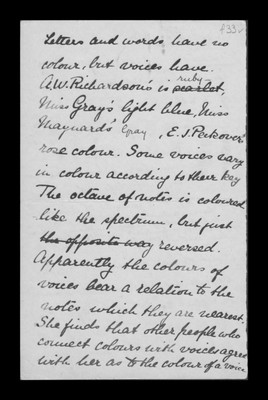 Letters and words have no
colour, but voices have.
ruby
A.W. Richardson's is scarlet,
Miss Gray's light blue, Miss
Maynard's gray, E.J. Peckover
rose colour. Some voices vary
in colour according to their key
The octave of notes is coloured
like the spectrum, but just
the opposite way reversed.
Apparently the colours of
voices bear a relation to the
notes which they are nearest.
She finds that other people who
connect colours with voices agree
with her as to the colour of a voice